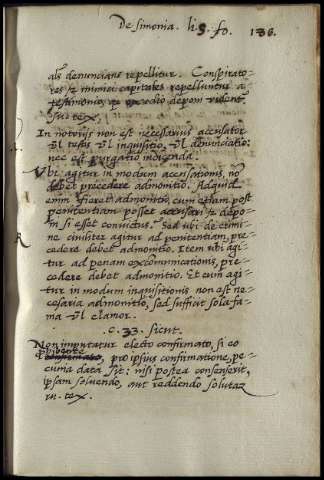 De simonia. li. 5. fo. 136.
als denuncians repellitur. Conspirato-
res seu inimici capitales repelluntur a
testimonio, ex odio depon vident
sue tex,
In notorijs non est necessarius accusator
vl testis vl inquisitio, vl denunciatio:
nec est purgatio indicenda.
Ubi agitur in modum accusationis, no
debet precedere admonitio. Ad quid
enim fieret admonitio, cum etiam post
penitentiam posset accusari & depo-
ni si esset convictus. Sed ubi de crimi
ne civiliter agitur ad penitentiam, pre
cedere debet admonitio. Item ubi agi-
tur ad penam excommunicationis, pre-
cedere debet admonitio. Et cum agi-
tur in modum inquisitionis non est ne-
cesaria admonitio, sed sufficit sola fa-
ma vl clamor.
c. 33. sicut.
Non imputatur electo confirmato, si eo
prohibente
pro ipsius confirmatione, pe-
cunia data sit: nisi postea consenserit,
ipsam solvendo, aut reddendo solutaz
in tex.